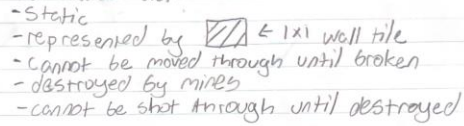 -Static
-represented by ← 1x1 wall tile
-cannot be moved through until broken
-destroyed by mines
-cannot be shot through until destroyed